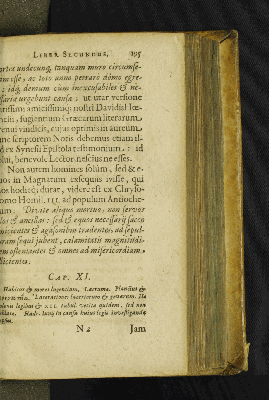 LIBER SECUNDUS. 195
ortæ undecunq, tanquam muro circumse-
am esse, ac toto anno perraro domo egre-
idq, demum cum inexcusabiles & ne-
ssariæ urgebunt causæ: ut utar versione
amicissimiq; nostri Davidis
fugientium Græcarum literarum,
venui vindicis, cujus optimis in aureum,
scriptorem Notis debemus etiam il-
d ex Synesii Epistola testimonium, id
olui, benevole Lector, nescius ne esses.
Non autem homines solum, sed & e-
uos in Magnatum exsequiis ivisse, qui
os hodieq; durat, videre est ex Chryso-
omo Homil. III. ad populum Antioche-
um. Divite aliquo mortuo, non servos
los & ancillas: sed & equos necessarii sacco
micientes & agasonibus tradentes, ad sepul-
uram sequi jubent, calamitatis magnitudi-
em ostentantes & omnes ad misericordiam,
licientes.
CAP. XI.
Habitus & mores lugentium. Lacrumæ. Planctus &
Lacerationes lacertorum & genarum.
legibus & XII. tabul. vetita quidem, sed non
in causa hujus legis investiganda
N 2 Jam